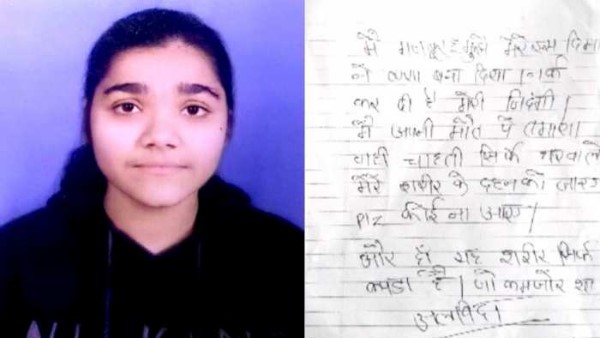 मै मजबूर हू मुझे मेरे इस दिमा
ने क्या बना दिया । नर्क
कर दी है मेरी जिंदगी ।
मै अपनी मौत पे तमाशा
नही चाहती सिर्फ घरवाले
मेरे शरीर के दहन को जाए
Plz कोई ना आए ।
और हाँ यह शरीर सिर्फ
कपडा है । जो कमजोर था
अलविदा ।